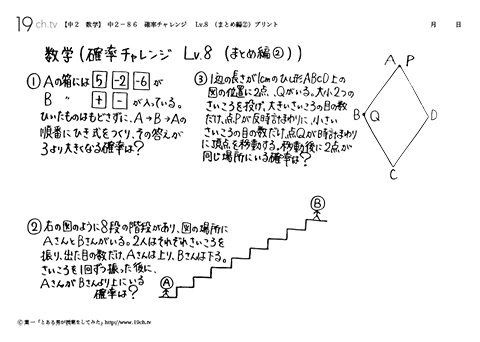 19ch.tv 【中2 数学】 中2-86 確率チャレンジ Lv.8 (まとめ編②) プリント 月 日
数学(確率チャレンジ Lv.8 (まとめ編②))
① Aの箱には 5 -2 -6 が
B 〃 + - が入っている。
ひいたものはもどさずに、A→B→Aの
順番にひき式をつくり、その答えが
3より大きくなる確率は?
③ 1辺の長さが1cmのひし形ABCD上の
図の位置に2点P、Qがいる。大小2つの
さいころを投げ、大きいさいころの目の数
だけ、点Pが反時計まわりに、小さい
さいころの目の数だけ、点Qが時計まわり
に頂点を移動する。移動後に2点が
同じ場所にいる確率は?
A P
B Q D
C
② 右の図のように8段の階段があり、図の場所に
AさんとBさんがいる。2人はそれぞれさいころを
振り、出た目の数だけ、Aさんは上り、Bさんは下る。
さいころを1回ずつ振った後に、
AさんがBさんより上にいる
確率は?
A
B
© 葉一「とある男が授業をしてみた」http://www.19ch.tv